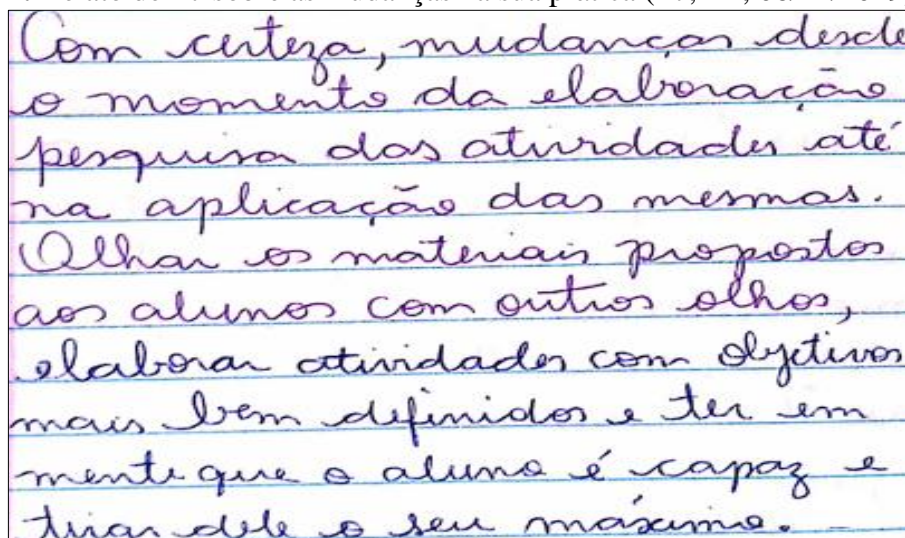 Com certeza, mudanças desde
o momento da elaboração
pesquisa das atividades até
na aplicação das mesmas.
Olhar os materiais propostos
aos alunos com outros olhos,
elaborar atividades com objetivos
mais bem definidos e ter em
mente que o aluno é capaz e
tirar dele o seu máximo.